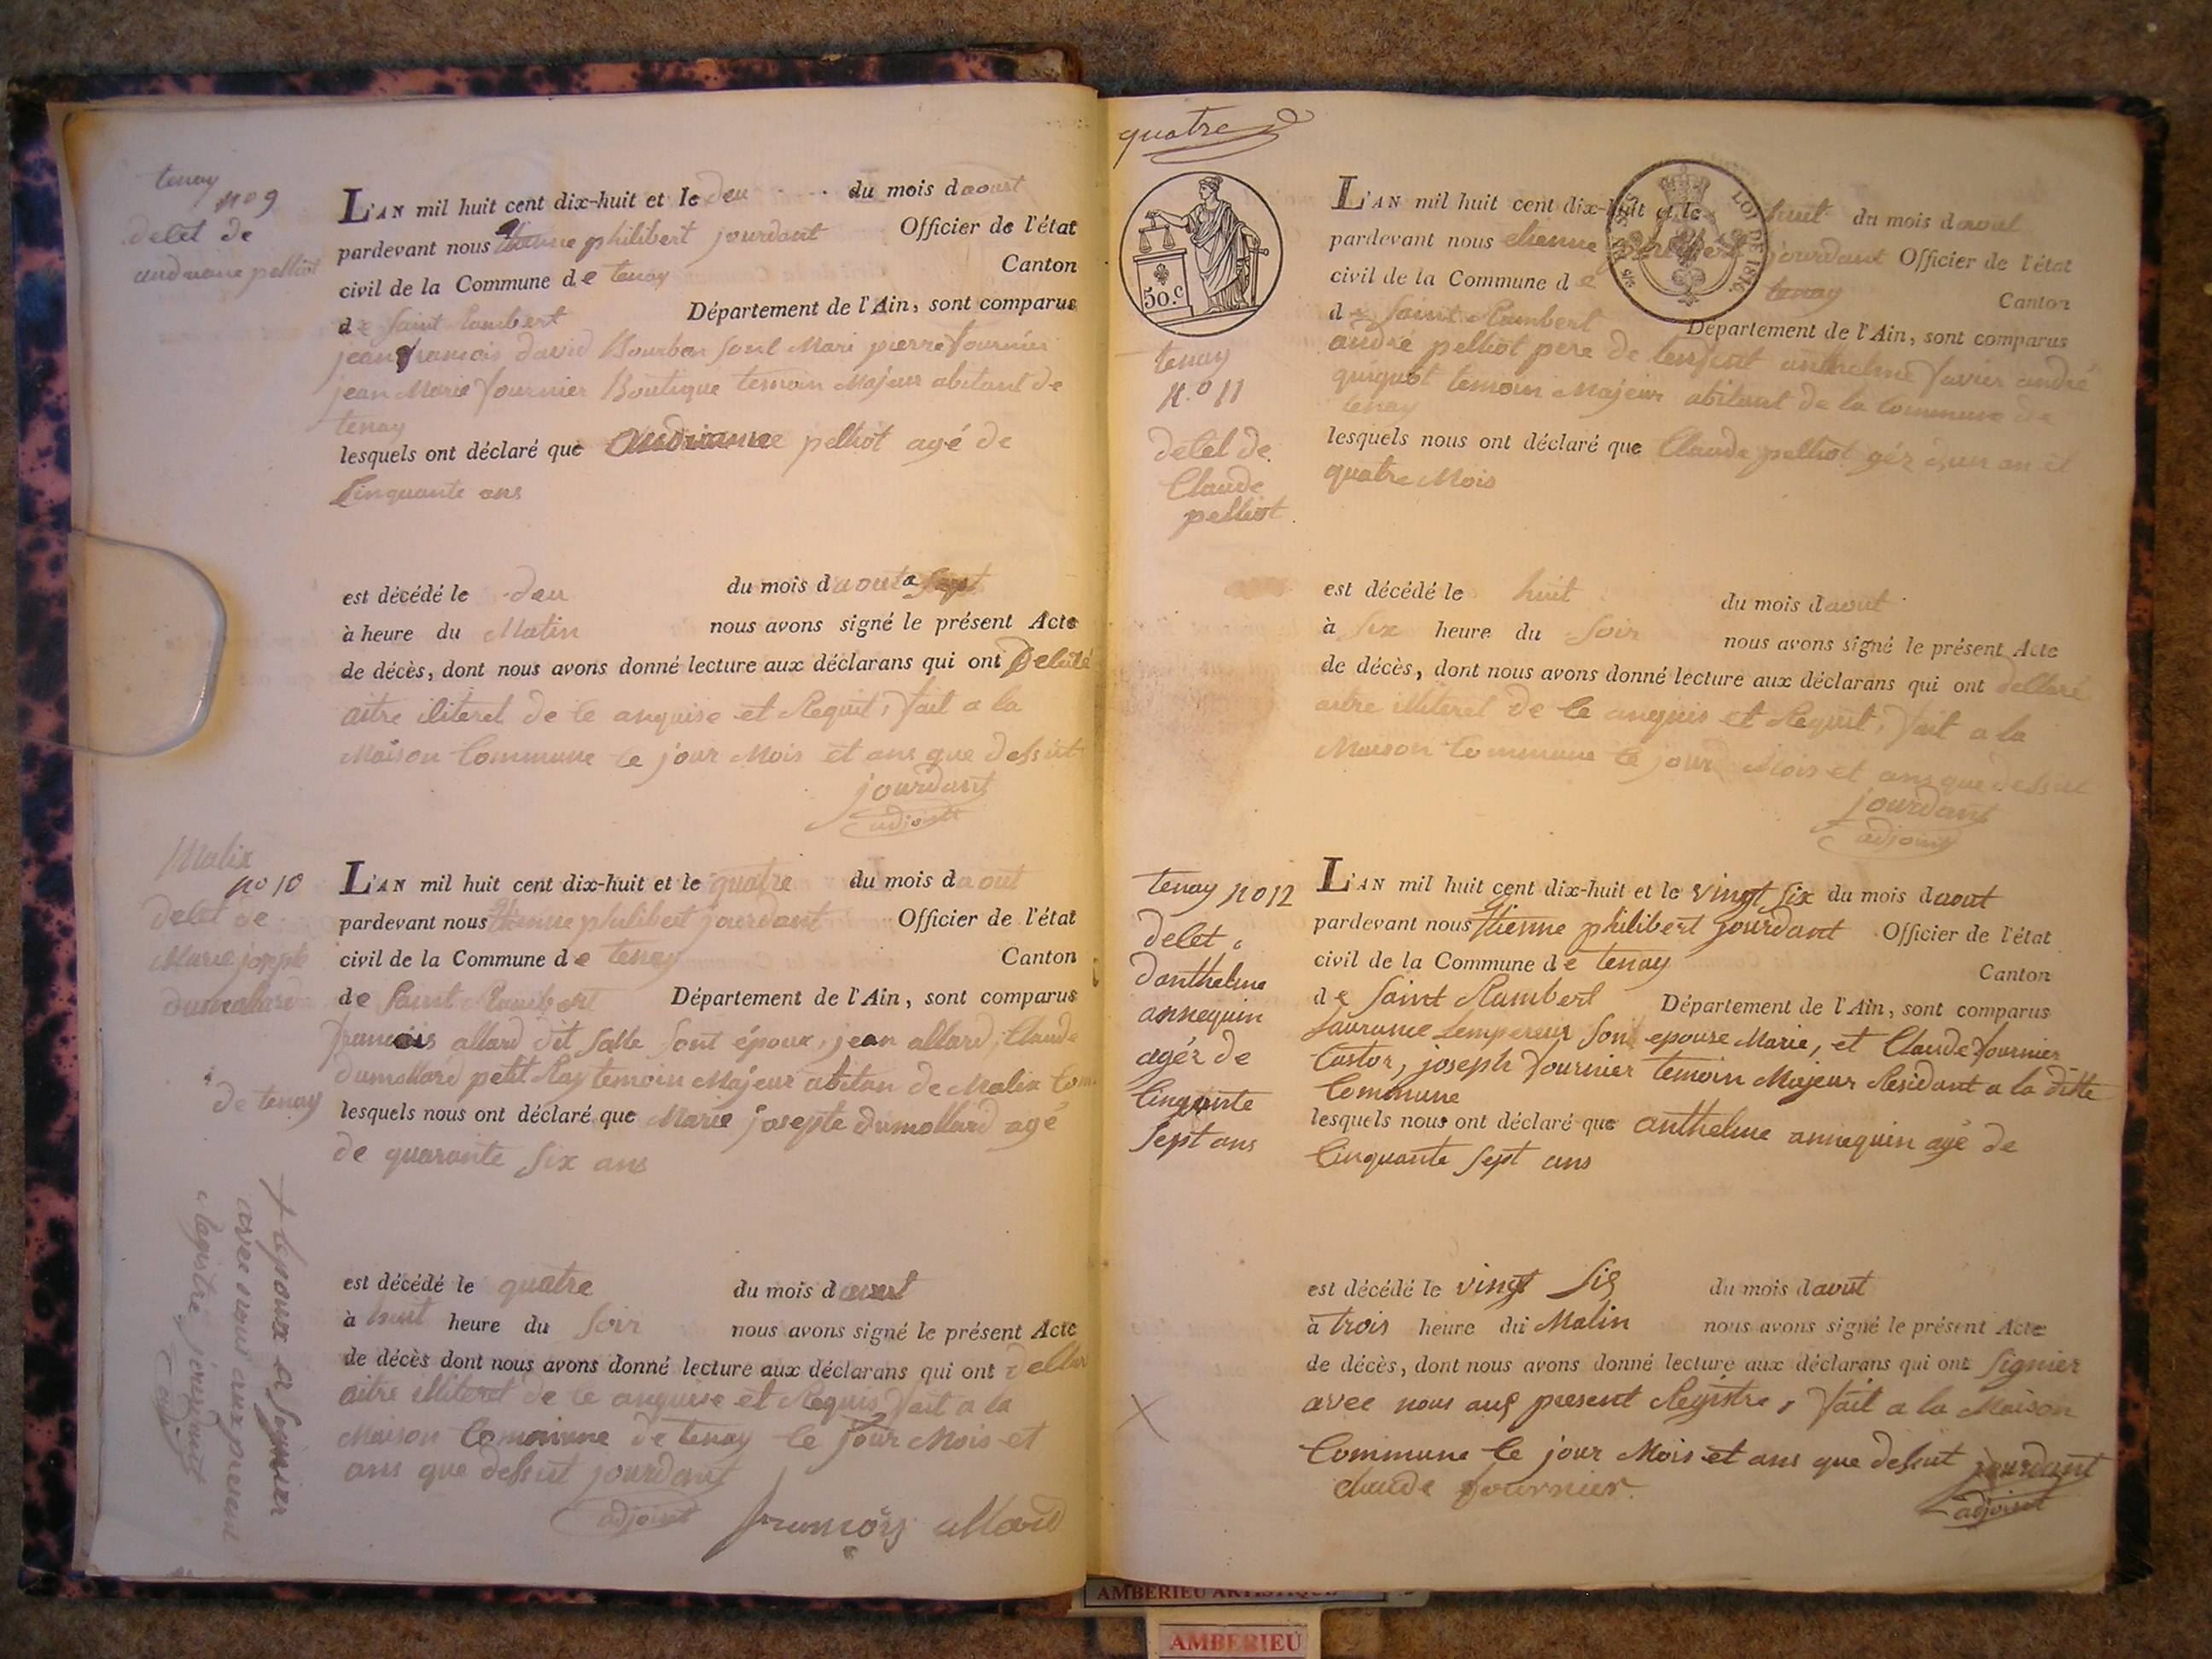 tenay
n° 9
delet de
andrianne pelliot
L'AN mil huit cent dix-huit et le deu du mois daoust
pardevant nous etienne philibert jourdant Officier de l'état
civil de la Commune de tenay Canton
de Saint Rambert Département de l'Ain, sont comparus
jean francois david Bourbon Sont Mari pierre fournier
jean Marie fournier Boutique temoin Majeur abitant de
tenay
lesquels ont déclaré que pelliot agé de
Cinquante ans
est décédé le deu du mois daout a Sept
à heure du Matin nous avons signé le présent Acte
de décès, dont nous avons donné lecture aux déclarans qui ont
aitre iliteret de ce anquise et Requit, fait a la
Maison Commune le jour Mois et ans que dessut
jourdant
adjoint
Malix
no 10
delet de
Marie josepte
dumollard
de tenay
L'AN mil huit cent dix-huit et le quatre du mois daout
pardevant nous etienne philibert jourdant Officier de l'état
civil de la Commune de tenay Canton
de Saint Rambert Département de l'Ain, sont comparus
francois allard dit Salle Sont époux, jean allard, Claude
dumollard petit Ray temoin Majeur abitan de Malix Com
lesquels nous ont déclaré que Marie josepte dumollard agé
de quarante Six ans
est décédé le quatre du mois daout
à huit heure du Soir nous avons signé le présent Acte
de décès dont nous avons donné lecture aux déclarans qui ont dellar
aitre illiteret de ce anquise et Requis fait a la
Maison Commune de tenay le jour Mois et
ans que dessut jourdant
adjoint
francois allard
+ lepoux a Signier
avec nous aux present
Registre, jourdant
adj
quatre
50.c
LOI DE 1816.
tenay
N.° 11
delet de
Claude
pelliot
L'AN mil huit cent dix-huit et le huit du mois daout
pardevant nous etienne philibert jourdant Officier de l'état
civil de la Commune de tenay Canton
de Saint Rambert Département de l'Ain, sont comparus
andré pelliot pere de lenfent anthelme favier andré
quiquot temoin Majeur abitant de la Commune de
tenay
lesquels nous ont déclaré que Claude pelliot agéz dun an et
quatre Mois
est décédé le huit du mois daout
à Six heure du Soir nous avons signé le présent Acte
de décès, dont nous avons donné lecture aux déclarans qui ont dellaré
aitre illiteret de ce anquis et Requit, fait a la
Maison Commune le jour Mois et ans que dessut
jourdant
adjoint
tenay no 12
delet
danthelme
annequin
agéz de
Cinquante
Sept ans
L'AN mil huit cent dix-huit et le vingt Six du mois daout
pardevant nous Etienne philibert jourdant Officier de l'état
civil de la Commune de tenay Canton
de Saint Rambert Département de l'Ain, sont comparus
Laurance Lempereur Sont epouse Marie, et Claude fournier
Castor, joseph fournier temoin Majeur Residant a la ditte
Commune
lesquels nous ont déclaré que anthelme annequin agé de
Cinquante Sept ans
est décédé le vingt Six du mois daout
à trois heure du Matin nous avons signé le présent Acte
de décès, dont nous avons donné lecture aux déclarans qui ont Signier
avec nous aux present Registre, fait a la Maison
Commune le jour Mois et ans que dessut jourdant
adjoint
claude fournier
AMBERIEU ARTISTIQUE
AMBERIEU